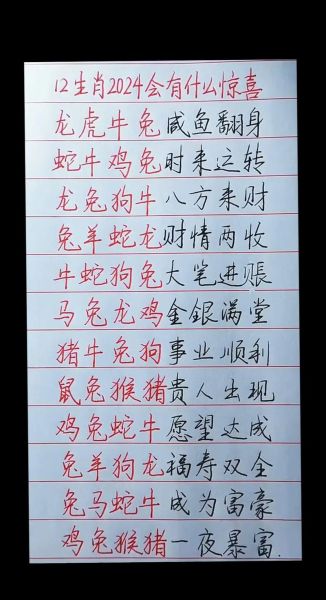 12生肖2024会有什么惊喜
龙虎牛兔咸鱼翻身
蛇牛鸡兔时来运转
龙兔狗牛八方来财
兔羊蛇龙财情两收
牛蛇狗兔大笔进賬
马兔龙鸡金银满堂
猪牛兔狗事业顺利
鼠兔猴猪贵人出现
鸡兔蛇牛愿望达成
兔羊狗龙福寿双全
兔马蛇牛成为富豪
鸡兔猴猪一夜暴富.